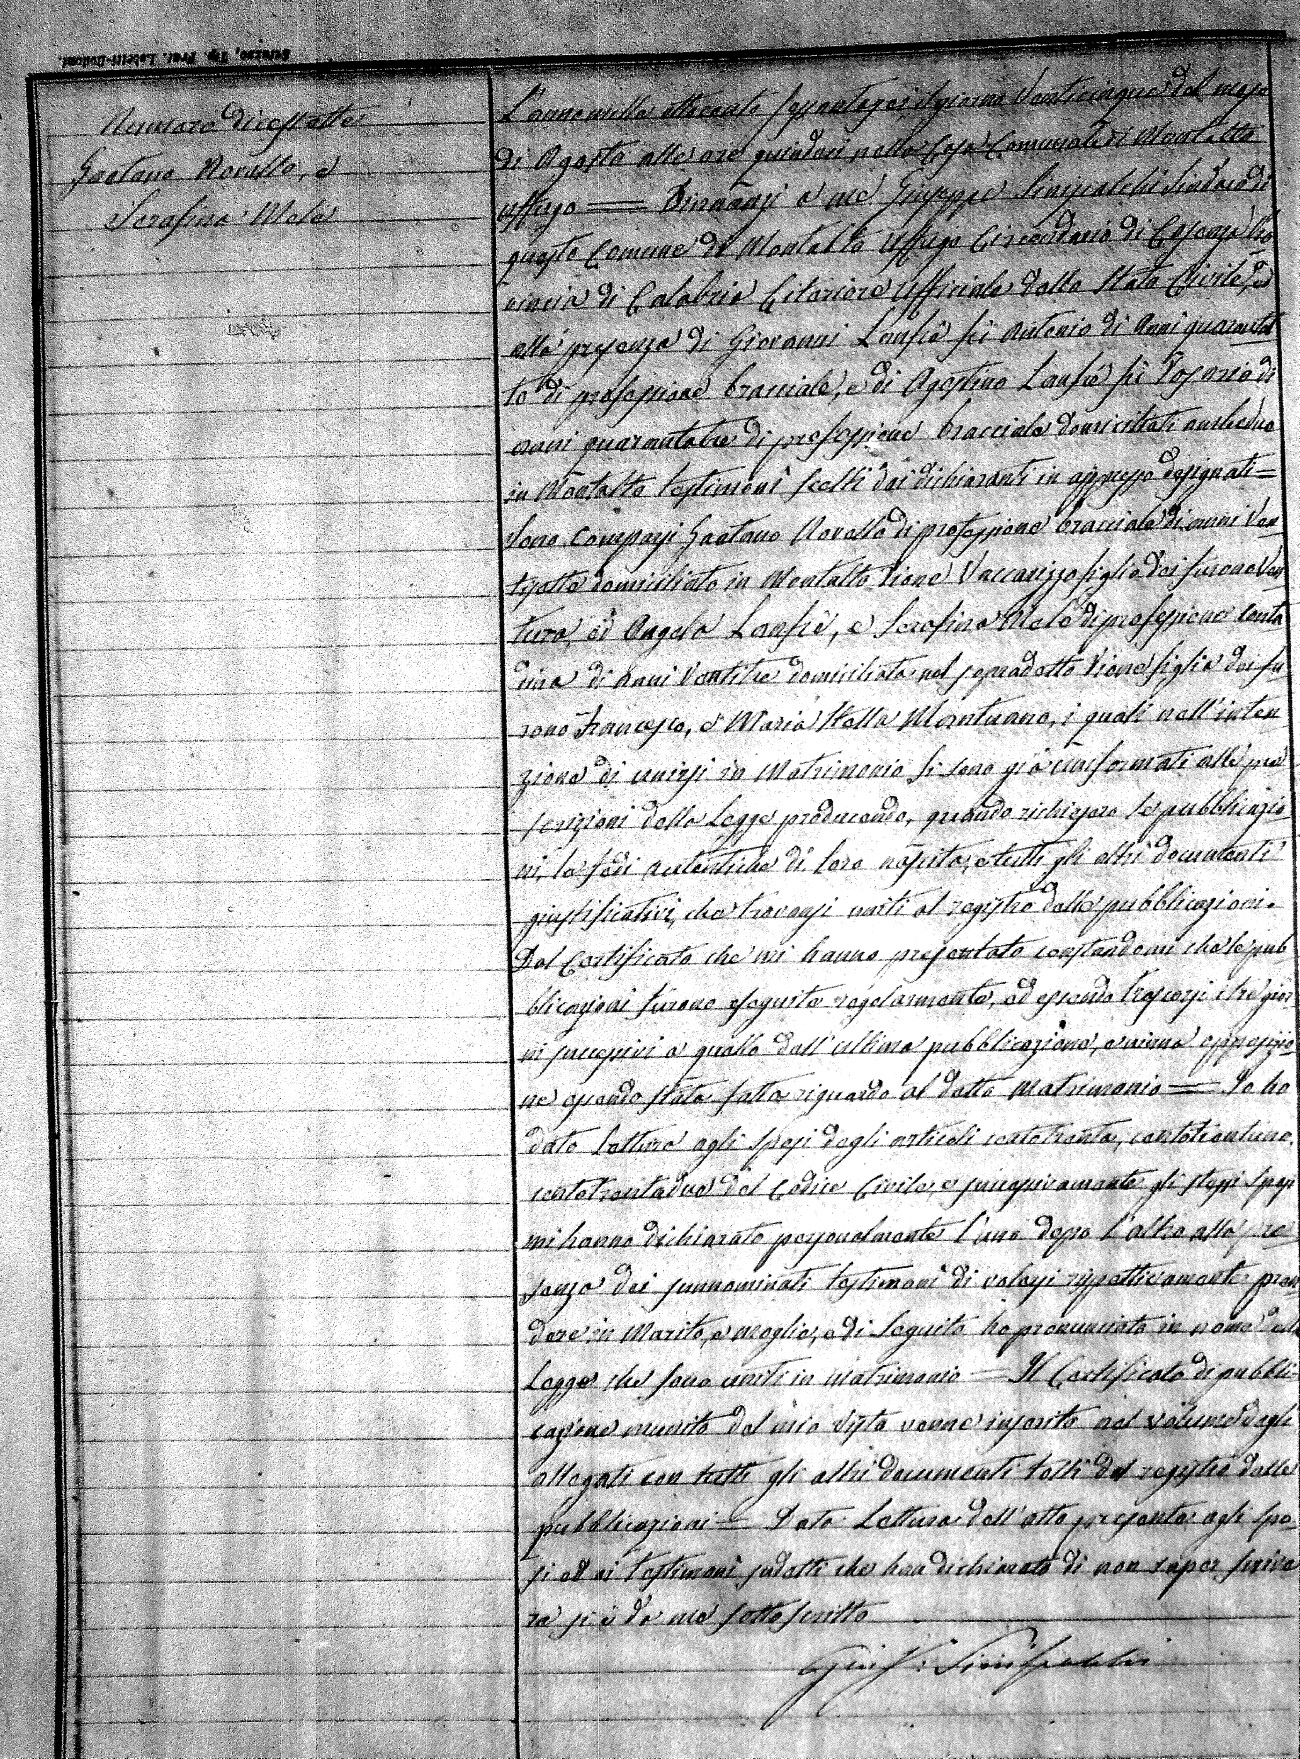 Cosenza, Tip. Prov.
Numero diciassette
Gaetano Rovello, e
Serafina Melo
L'anno mille ottocento sessantasei, il giorno Venticinque del mese
di Agosto alle ore quindeci nella Casa Comunale di Montalto
Uffugo = Dinnanzi a me Giuseppe Siniscalchi Sindaco di
questo Comune di Montalto Uffugo Circondario di Cosenza Pro
vincia di Calabria Citeriore Uffiziale dello Stato Civile, ed
alla presenza di Giovanni Lanfré fu Antonio di Anni quarantot
to di professione bracciale, e di Agostino Lanfré fu Rosario di
anni quarantatre di professione bracciale domiciliati ambedue
in Montalto testimoni scelti dai dichiaranti in appresso designati =
Sono comparsi Gaetano Rovello di professione bracciale di anni Ven
tisette domiciliato in Montalto Rione Vaccarizzo figlio dei furono Ven
tura, ed Angela Lanfré, e Serafina Melo di professione conta
dina di Anni Ventitre domiciliata nel sopradetto Rione figlia dei fu
rono Francesco, e Maria Stella Mantuano, i quali nell'inten
zione di unirsi in Matrimonio si sono già uniformati alle pre
scrizioni della Legge producendo, quando richiesero le pubblicazio
ni, le fedi autentiche di loro nascita, e tutti gli altri documenti
giustificativi, che trovansi uniti al registro delle pubblicazioni.
Dal Certificato che mi hanno presentato constandomi che le pub
blicazioni furono eseguite regolarmente, ed essendo trascorsi i tre gior
ni successivi a quello dell'ultima pubblicazione, e niuna opposizio
ne essendo stata fatta riguardo al detto Matrimonio = Io ho
dato lettura agli sposi degli articoli centotrenta, centotrentuno,
centotrentadue del Codice Civile, e successivamente gli stessi sposi
mi hanno dichiarato personalmente l'uno dopo l'altro alla pre
senza dei sunnominati testimoni di volersi rispettivamente pren
dere in Marito, e moglie, e di seguito ho pronunciato in nome della
Legge che sono uniti in matrimonio = Il Certificato di pubbli
cazione munito del mio visto venne inserito nel volume degli
allegati con tutti gli altri documenti tolti dal registro delle
pubblicazioni = Data lettura dell'atto presente agli spo
si ed ai testimoni sudetti che han dichiarato di non saper scrive
re si è da me sottoscritto
Gius. Siniscalchi